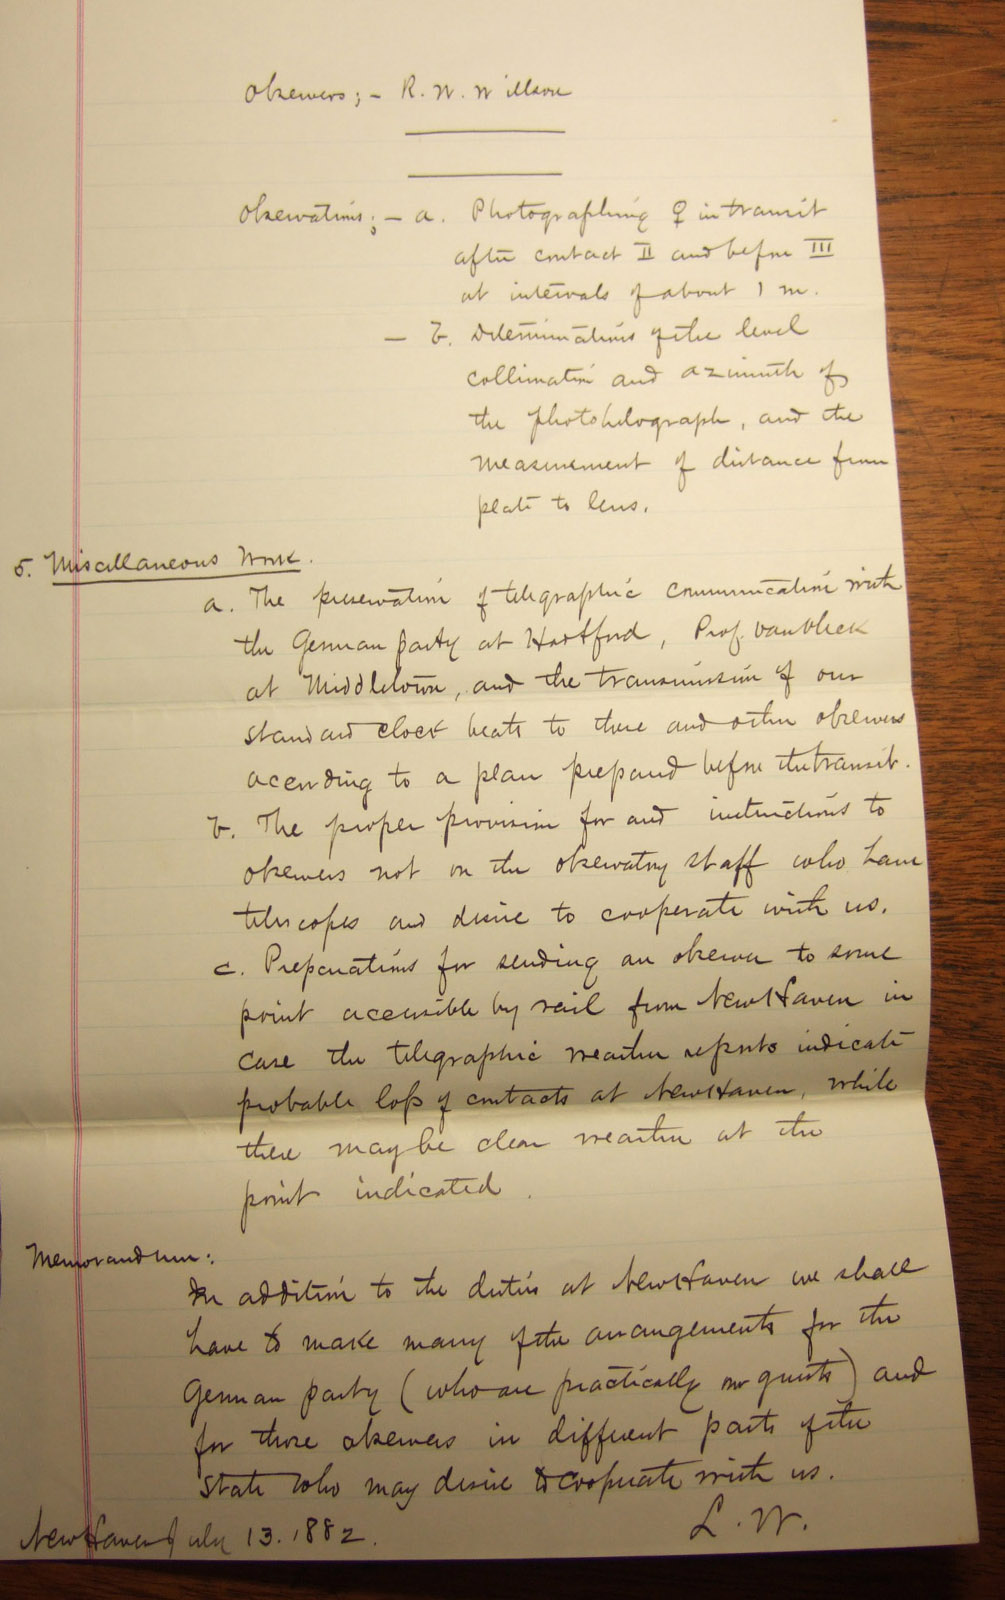 Observers; - R. W. Willson
Observations; - a. Photographing ♀ in transit
after contact II and before III
at intervals of about 1 m.
- b. Determinations of the level
collimation and azimuth of
the photoheliograph, and the
measurement of distance from
plate to lens.
5. Miscellaneous Work.
a. The preservation of telegraphic communication with
the German party at Hartford, Prof. Van Vleck
at Middletown, and the transmission of our
standard clock beats to these and other observers
according to a plan prepared before the transit.
b. The proper provision for and instructions to
observers not on the observatory staff who have
telescopes and desire to cooperate with us.
c. Preparations for sending an observer to some
point accessible by rail from New Haven in
case the telegraphic weather reports indicate
probable loss of contacts at New Haven, while
there may be clear weather at the
point indicated.
Memorandum:
In addition to the duties at New Haven we shall
have to make many of the arrangements for the
German party (who are practically our guests) and
for those observers in different parts of the
state who may desire to cooperate with us.
L. W.
New Haven July 13. 1882.